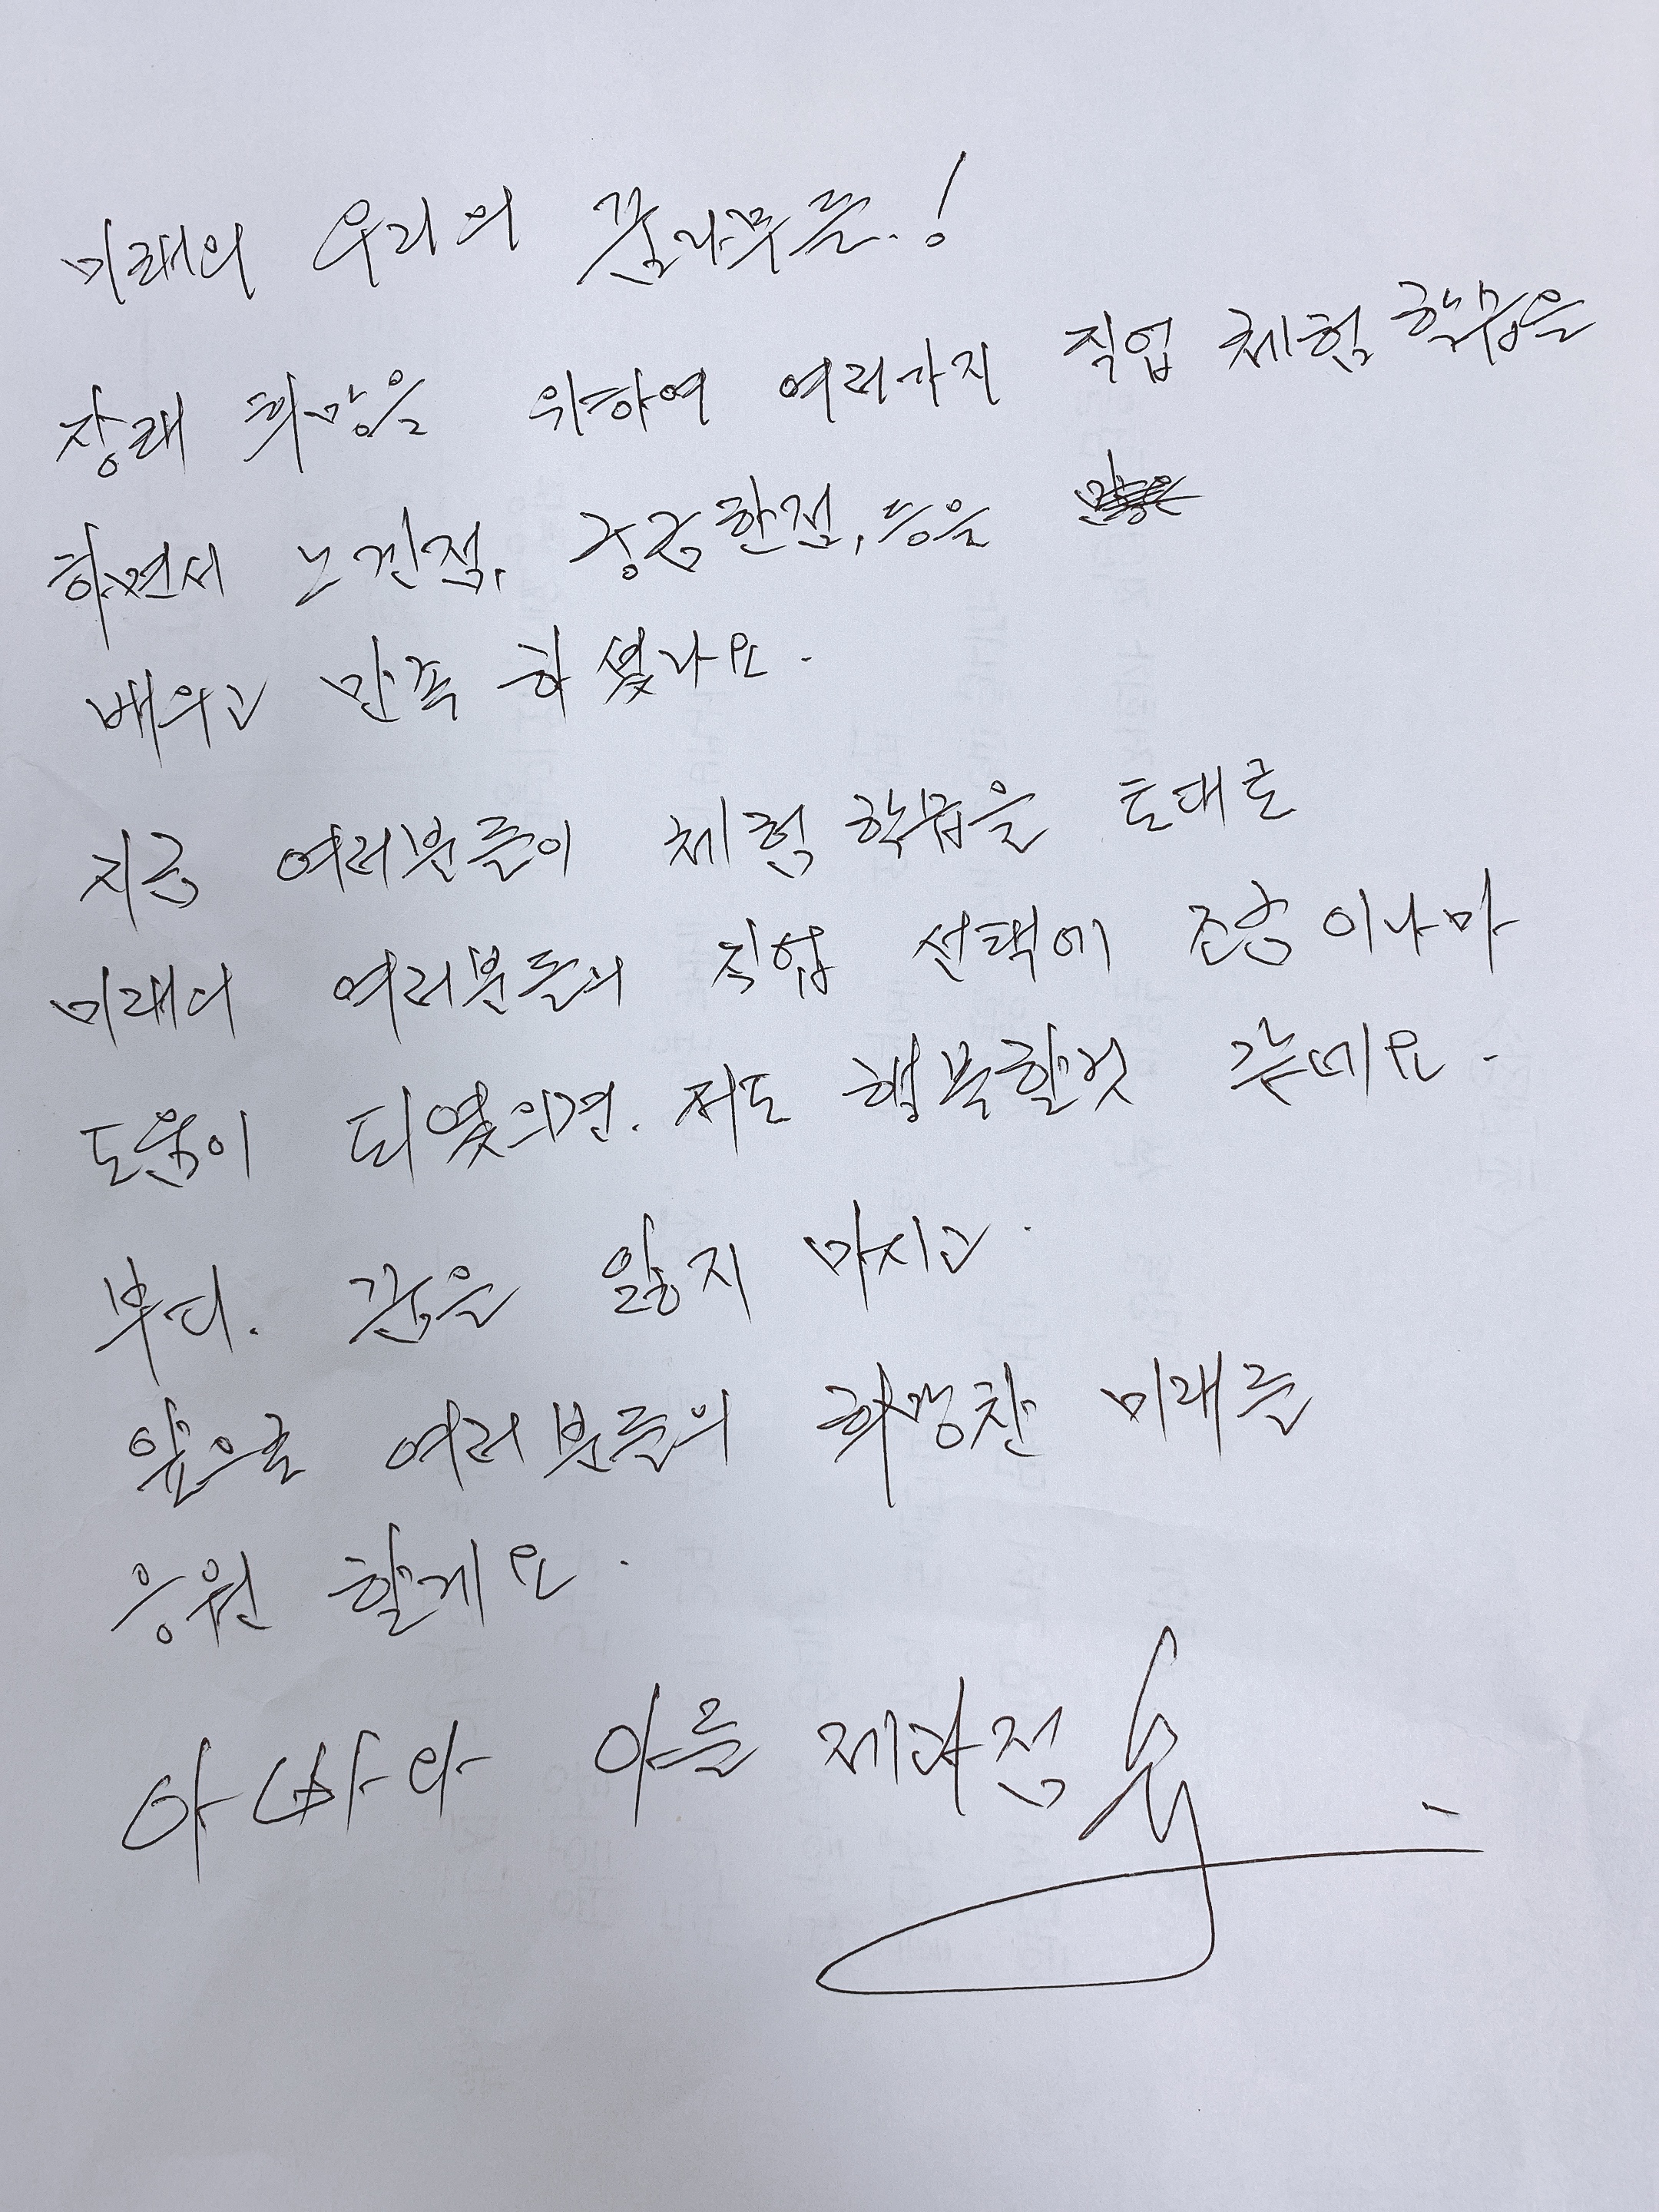 미래의 우리의 꿈나무들.!
장래 희망을 위하여 여러가지 직업 체험 학습을
하면서 느낀점, 궁금한점, 등을
배우고 만족 하셨나요.
지금 여러분들이 체험 학습을 토대로
미래의 여러분들의 직업 선택에 조금이나마
도움이 되었으면. 저도 행복할것 같네요.
부디. 꿈을 잃지 마시고.
앞으로 여러분들의 희망찬 미래를
응원 할게요.
아빠와 아들 제과점